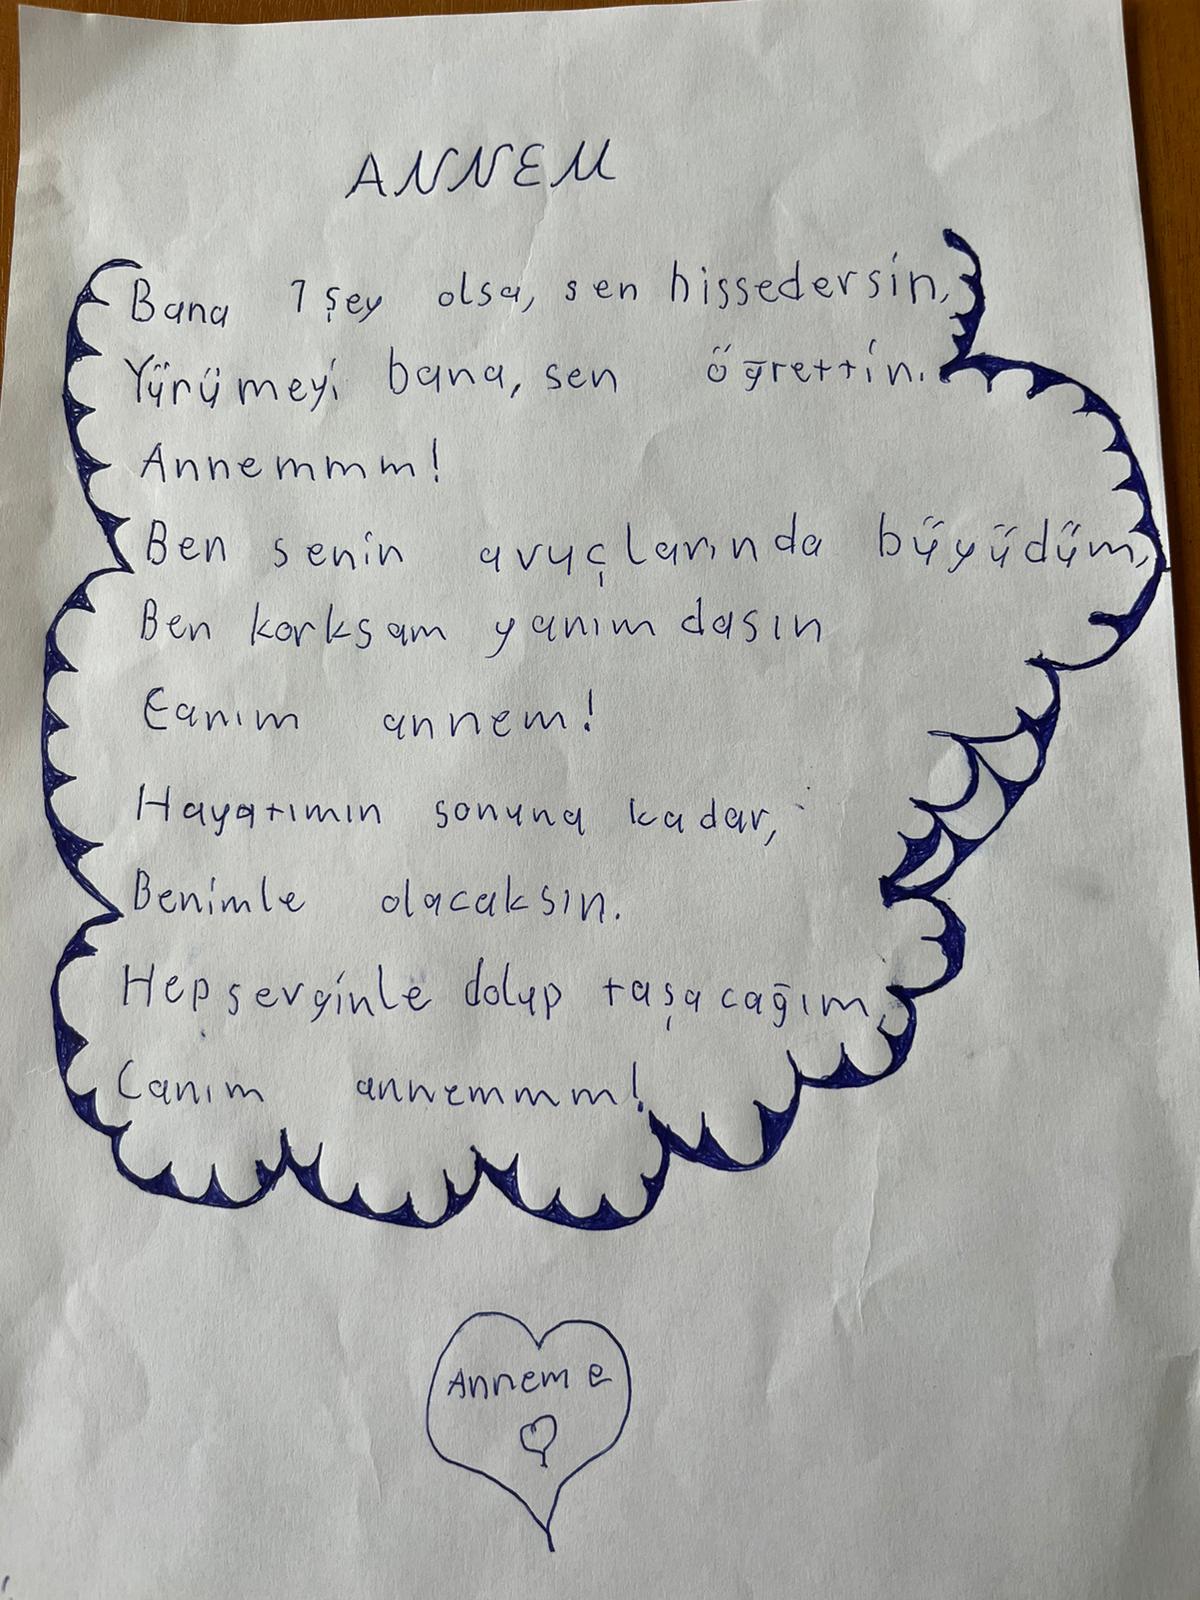 ANNEM
Bana 1 şey olsa, sen hissedersin,
Yürümeyi bana, sen öğrettin.
Annemmm!
Ben senin avuçlarında büyüdüm,
Ben korksam yanımdasın
Canım annem!
Hayatımın sonuna kadar,
Benimle olacaksın.
Hep sevginle dolup taşacağım,
Canım annemmm!
Anneme